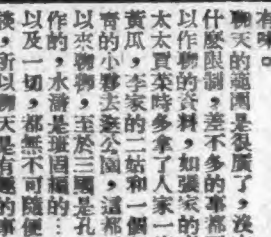 有味。
聊天的範圍是很廣了，沒
什麼限制，差不多的事都
以作聊的資料，如張家的
太太買菜時多拿了人家一
黃瓜，李家的二姑和一個
奇的小夥去逛公園，這都
以來聊聊，至於三國是孔
作的，水滸是班固編的…
以及一切，都無不可隨便
談，所以聊天是有趣的事